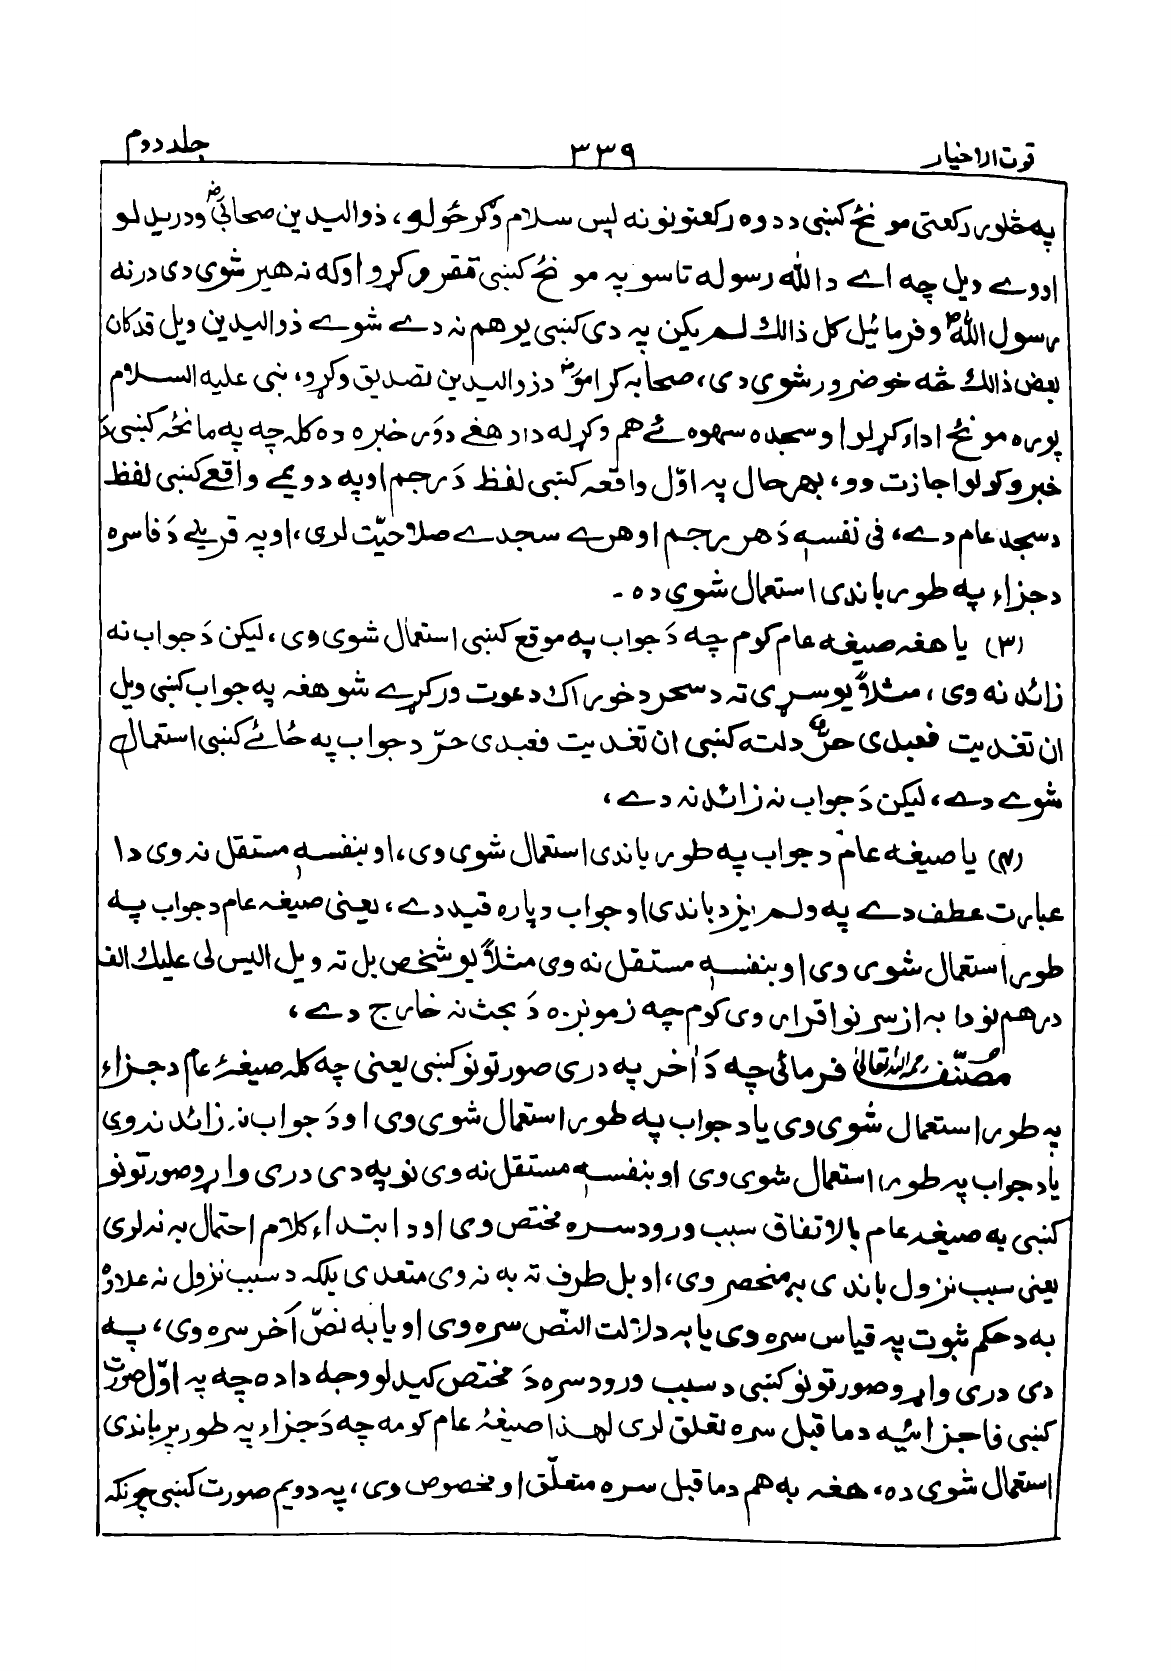 قوت الاخیار ۳۳۹ جلد دوم
په څلور رکعتی مونځ کښی د دوه رکعتونو نه پس سلام وګرځولو، ذوالیدین صحابیؓ ودرید لو
اووے ویل چه اے د الله رسوله تاسو په مونځ کښی قصر وکړو اوکه نه هیر شوی دی درنه
رسول اللهؐ وفرمائیل کل ذالك لم یکن په دی کښی یو هم نه دے شوے ذوالیدین ویل قد کان
بعض ذالك څه خو ضرور شوی دی، صحابه کراموؓ د ذوالیدین تصدیق وکړو، نبی علیه السلام
پوره مونځ اداء کړلو او سجده سهوه ئے هم وکړله دا د هغے دوَر خبره ده کله چه په مانځه کښی دَ
خبرو کولو اجازت وو، بهرحال په اوّل واقعه کښی لفظ دَ رجم او په دویمے واقعے کښی لفظ
د سجد عام دے، فی نفسه دَ هر رجم او هرے سجدے صلاحیّت لری، او په قرینے دَ فا سره
د جزاء په طور باندی استعمال شوی ده ـ
(۳) یا هغه صیغه عام کوم چه دَ جواب په موقع کښی استعمال شوی وی، لیکن دَ جواب نه
زائد نه وی، مثلاً یو سړی ته د سحر د خوراك دعوت ورکړے شو هغه په جواب کښی ویل
ان تغدیت فعبدی حرٌّ دلته کښی ان تغدیت فعبدی حرّ د جواب په ځائے کښی استعمال
شوے دے، لیکن دَ جواب نه زائد نه دے،
(۴) یا صیغه عام د جواب په طور باندی استعمال شوی وی، او بنفسه مستقل نه وی دا
عبارت عطف دے په ولم یزد باندی او جواب دپاره قید دے، یعنی صیغه عام د جواب په
طور استعمال شوی وی او بنفسه مستقل نه وی مثلاً یو شخص بل ته ویل الیس لی علیك الف
درهم نو دا به از سر نو اقرار وی کوم چه زمونږه دَ بحث نه خارج دے،
مصنّف رحمه الله تعالیٰ فرمائی چه دَ آخر په دری صورتونو کښی یعنی چه کله صیغۂ عام د جزاء
په طور استعمال شوی وی یا د جواب په طور استعمال شوی وی او دَ جواب نه زائد نه وی
یا د جواب په طور استعمال شوی وی او بنفسه مستقل نه وی نو په دی دری واړو صورتونو
کښی به صیغه عام بالاتفاق سبب ورود سره مختص وی او د ابتداء کلام احتمال به نه لری
یعنی سبب نزول باندی به منحصر وی، او بل طرف ته به نه وی متعدی بلکه د سبب نزول نه علاوه
به د حکم ثبوت په قیاس سره وی یا به دلالت النّص سره وی او یا به نصّ آخر سره وی، په
دی دری واړو صورتونو کښی د سبب ورود سره دَ مختص کیدلو وجه دا ده چه په اوّل صورت
کښی فا جزائیه د ما قبل سره تعلق لری لهذا صیغۂ عام کومه چه دَ جزاء په طور باندی
استعمال شوی ده، هغه به هم د ما قبل سره متعلّق او مخصوص وی، په دویم صورت کښی چونکه